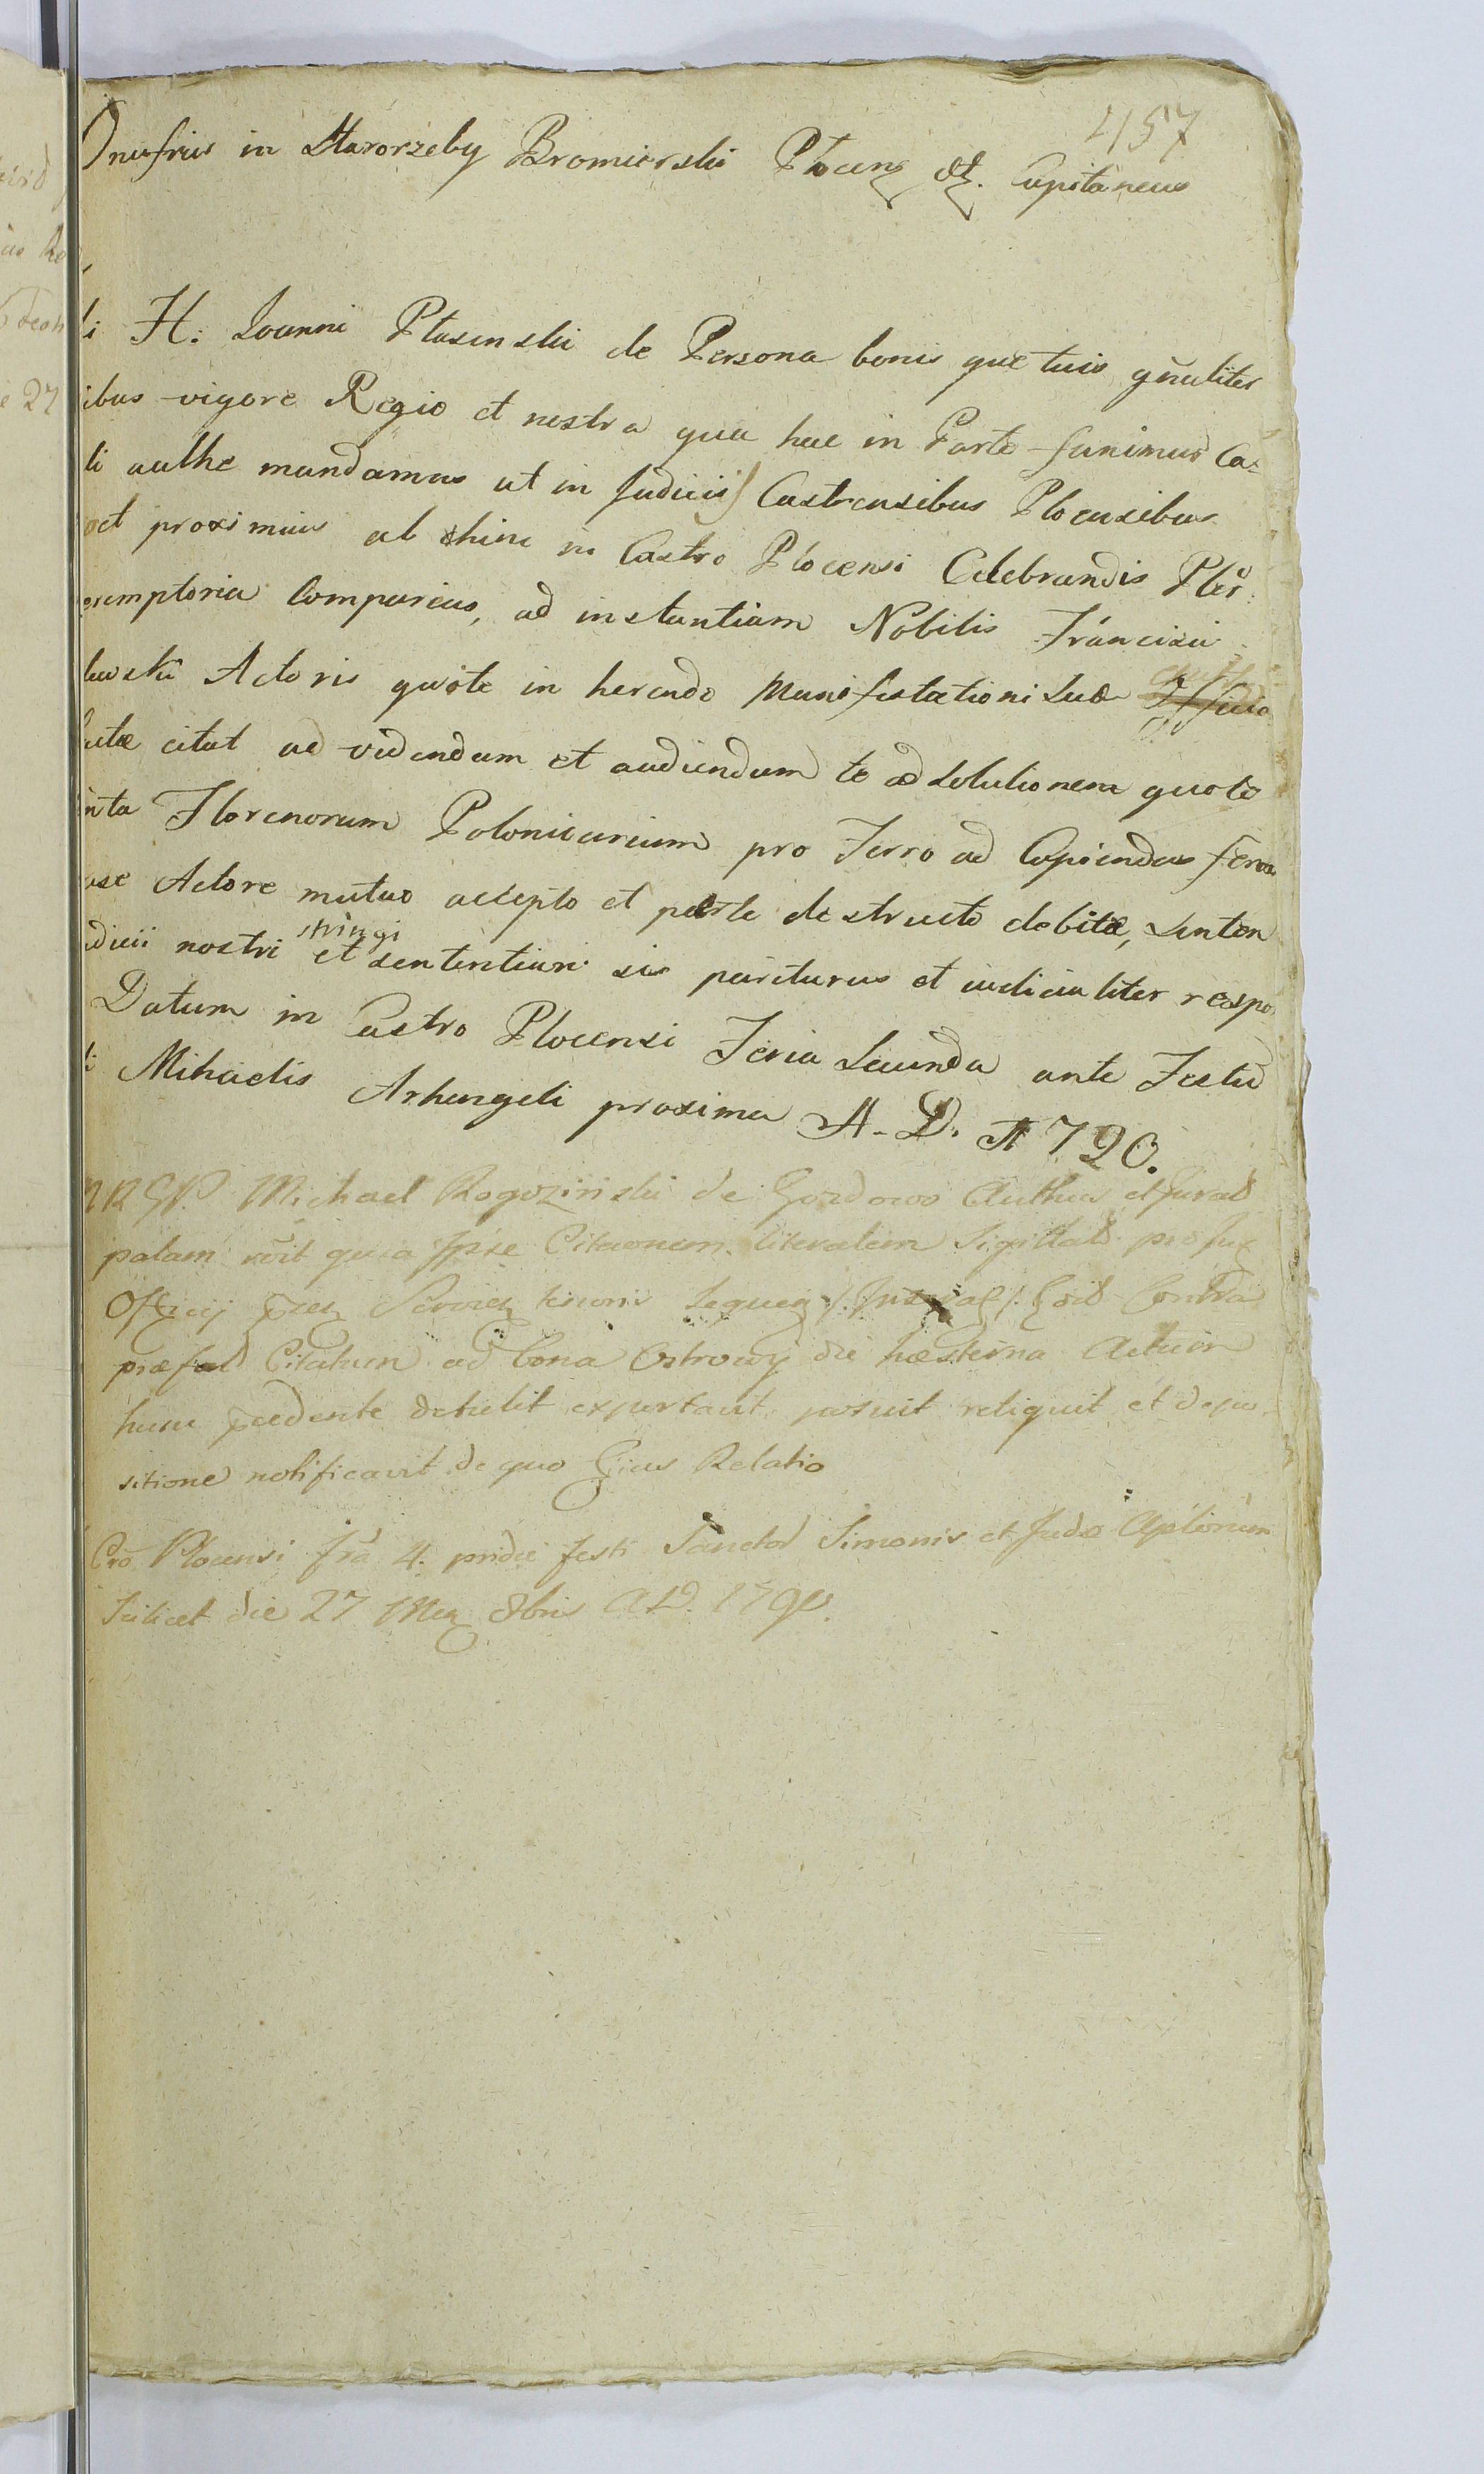 457
Onufrius in Starorzeby Bromierski Płocens etc. Capitaneus
H: Ioanni Plasinski de Persona bonis que tuis gnaliter
ibus vigore Regio et nostra qua hac in Parte funimur Ca=
li autthe mandamus ut in Judiciis Castrensibus Plocensibus
oct proximius ab hinc in Castro Plocensi Celebrandis Pter
eremptorie Compareas, ad instantiam Nobilis Francisci
lewski Actoris qui te in herendo Manifestationi Suæ
citat ad videndum et audiendum te ad solutionem quote
nta Florenorum Polonicarium pro Ferro ad Capiendas feras
ase Actore mutuo accepto et per te destructo debitæ, Senten
stringi
udicii nostri et sententiam sis pariturus et iudicialiter respo
Datum in Castro Plocensi Feria Secunda ante Festu
i Mihaelis Arhangeli proxima A. D. 1790.
MRGP. Michael Rogozinski de Gozdowo Authus et Jurat
palam rõit quia Ipse Citaonem literalem Sigillat
Officij Tenoris Sequen Contra
præfat Citatum ad bona Ostrowy die hæsterna Actum
hunc pcedente detulit exportavit posuit reliquit et depo
sitione notificavit de quo Ejus Relatio
Cro Plocensi fra 4. pridie festi Sanctor Simonis et Judæ Aplorum
Scilicet die 27 Men 8bris AD. 1790.